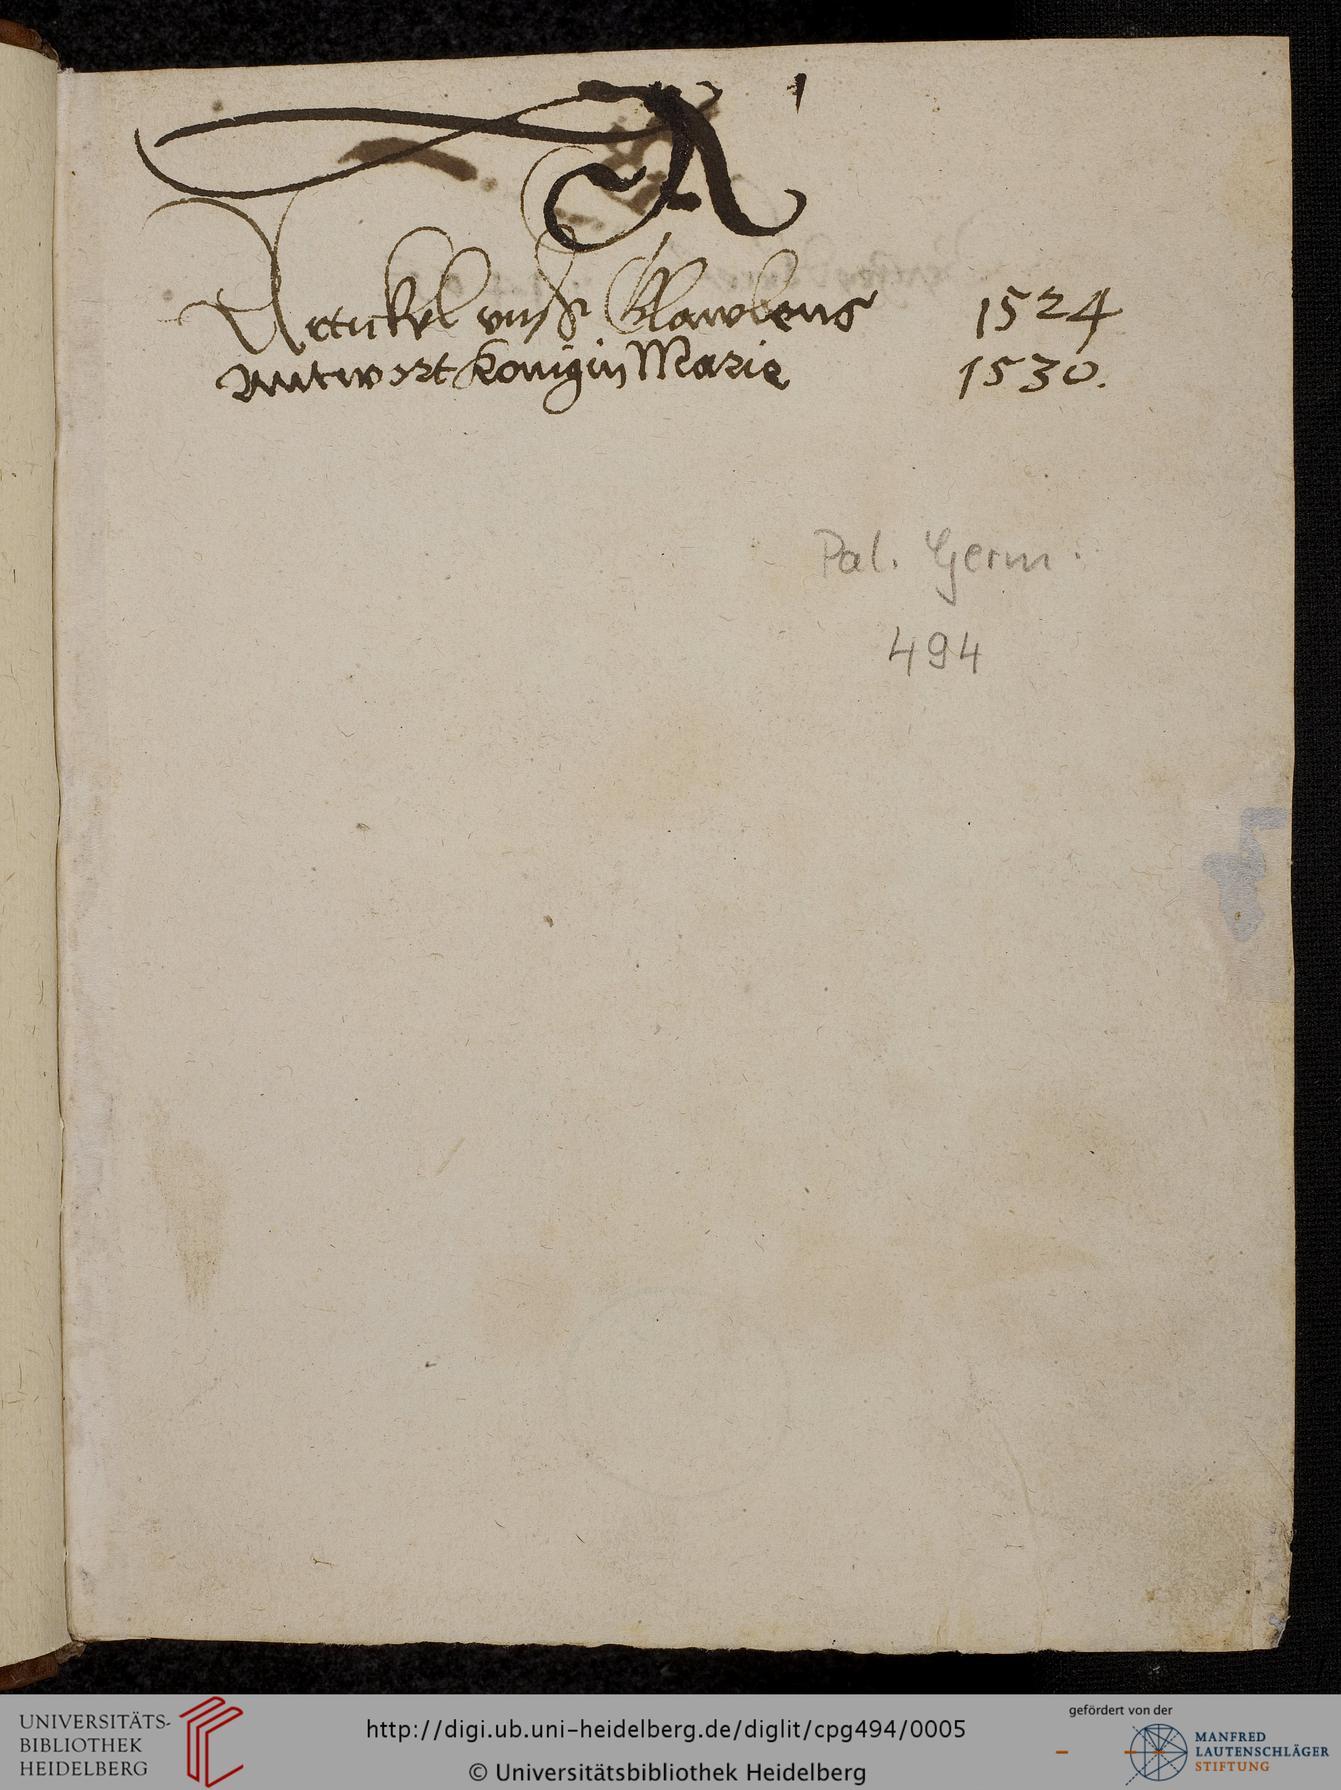 A
Artickel unser Glawbens 1524
Anntwort konigin Marie 1530.
Pal. Germ.
494
UNIVERSITÄTS-
BIBLIOTHEK
HEIDELBERG
http://digi.ub.uni-heidelberg.de/diglit/cpg494/0005
© Universitätsbibliothek Heidelberg
gefördert von der
MANFRED
LAUTENSCHLÄGER
STIFTUNG